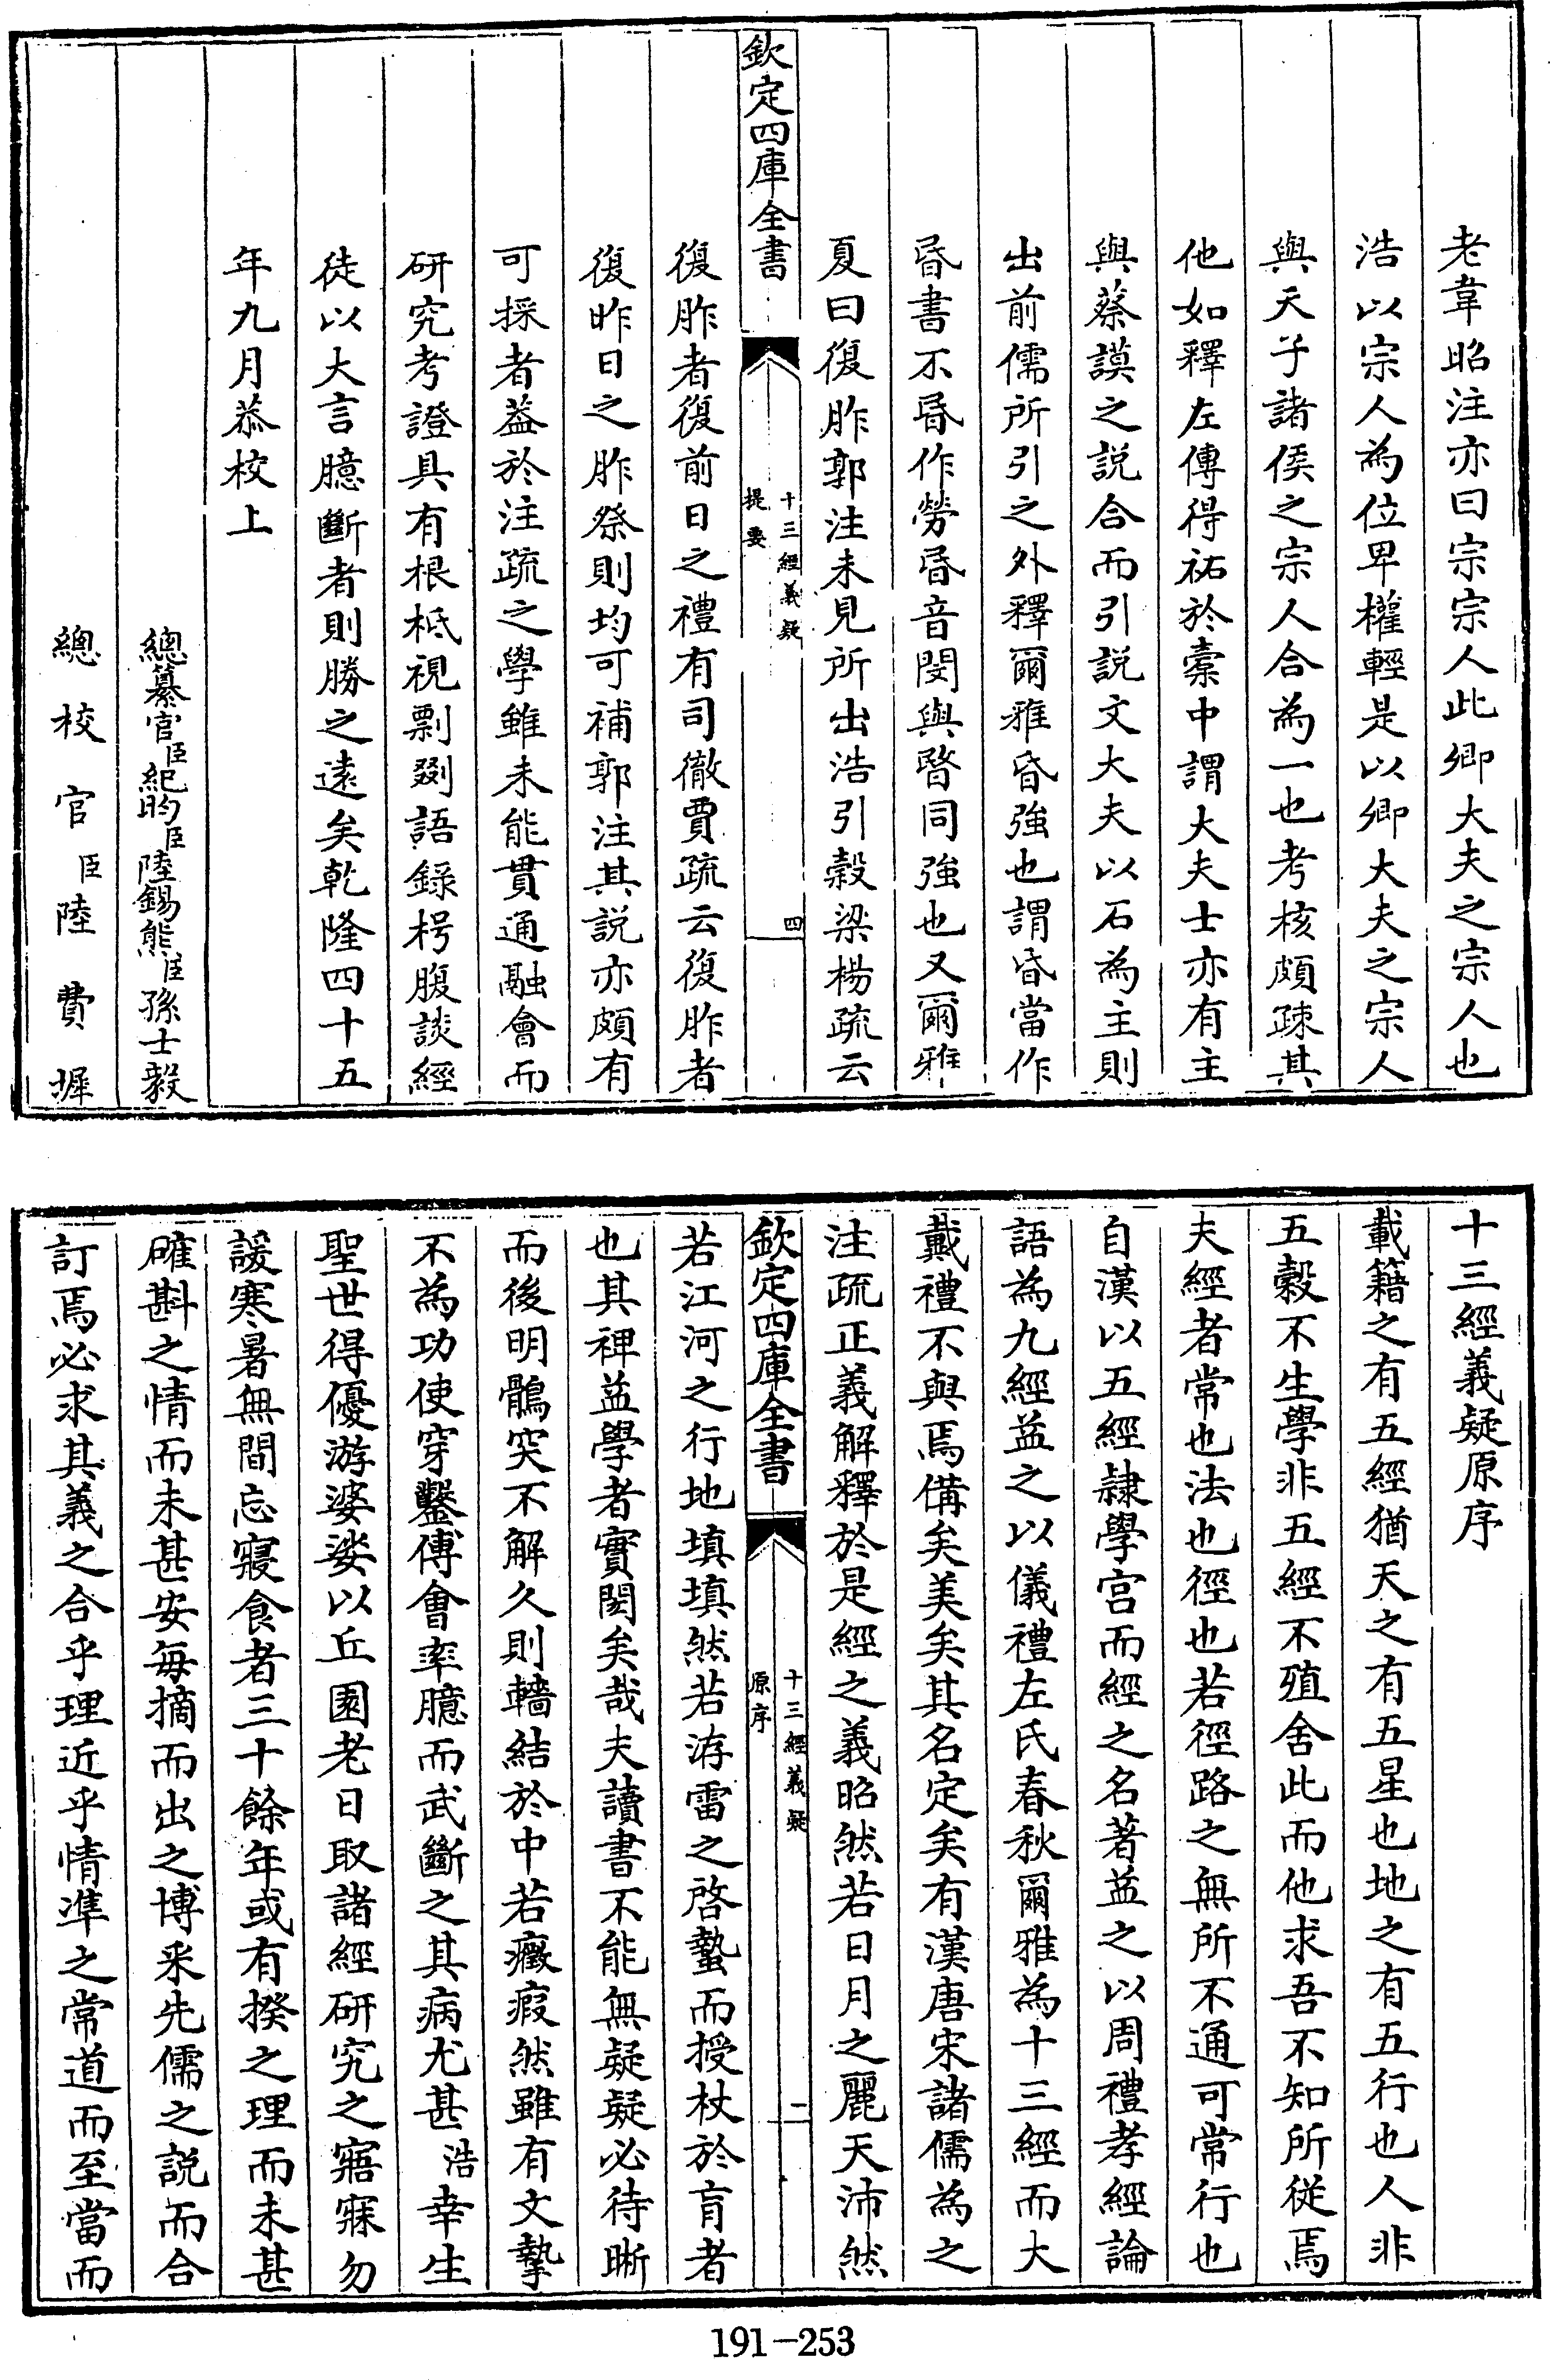 老韋昭注亦曰宗宗人此卿大夫之宗人也
浩以宗人為位卑權輕是以卿大夫之宗人
與天子諸侯之宗人合為一也考核頗疎其
他如釋左傳得祏於橐中謂大夫士亦有主
與蔡謨之説合而引説文大夫以石為主則
出前儒所引之外釋爾雅昏強也謂昏當作
昬書不昬作勞昬音閔與暋同強也又爾雅
夏曰復胙郭注未見所出浩引榖梁楊疏云
欽定四庫全書
十三經義疑
提要
四
復胙者復前日之禮有司徹賈疏云復胙者
復昨日之胙祭則均可補郭注其説亦頗有
可採者葢於注疏之學雖未能貫通融會而
研究考證具有根柢視剽剟語錄枵腹談經
徒以大言臆斷者則勝之遠矣乾隆四十五
年九月恭校上
總纂官臣紀昀臣陸錫熊臣孫士毅
總校官臣陸費墀
十三經義疑原序
載籍之有五經猶天之有五星也地之有五行也人非
五穀不生學非五經不殖舍此而他求吾不知所從焉
夫經者常也法也徑也若徑路之無所不通可常行也
自漢以五經隷學宫而經之名著益之以周禮孝經論
語為九經益之以儀禮左氏春秋爾雅為十三經而大
戴禮不與焉備矣美矣其名定矣有漢唐宋諸儒為之
注疏正義解釋於是經之義昭然若日月之麗天沛然
欽定四庫全書
十三經義疑
原序
一
若江河之行地填填然若洊雷之啓蟄而授杖於盲者
也其裨益學者實閎矣哉夫讀書不能無疑疑必待晰
而後明鶻突不解久則轖結於中若癥瘕然雖有文摯
不為功使穿鑿傅會率臆而武斷之其病尤甚浩幸生
聖世得優游婆娑以丘園老日取諸經研究之寤寐勿
諼寒暑無間忘寢食者三十餘年或有揆之理而未甚
確斟之情而未甚安毎摘而出之博采先儒之説而合
訂焉必求其義之合乎理近乎情凖之常道而至當而
191-253